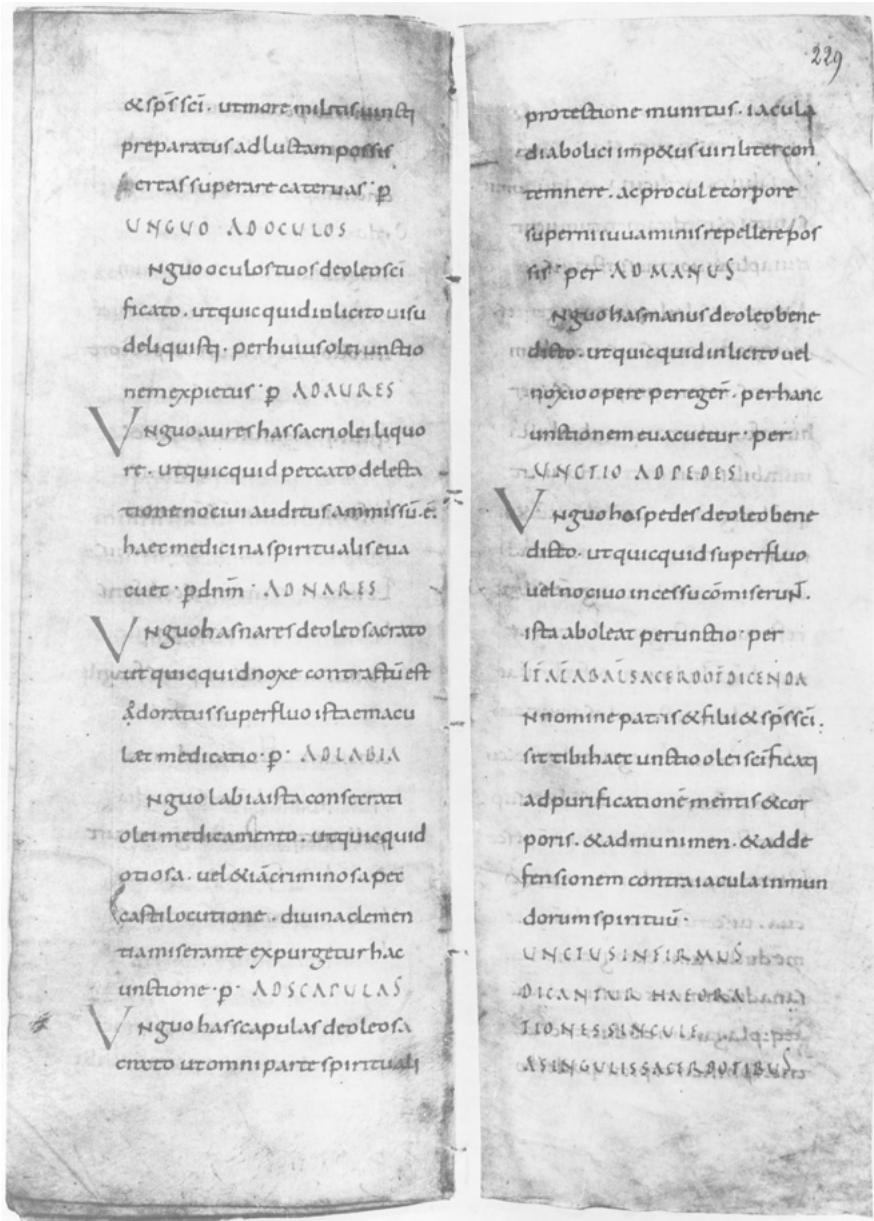 & sp̄s sc̄i · ut more militis uncti
preparatus ad luctam possis
aereas superare cateruas · p̄
UNGUO AD OCULOS
Nguo oculos tuos de oleo sc̄i
ficato · ut quicquid inlicito uisu
deliquisti · per huius olei unctio
nem expietur · p̄ AD AURES
Vnguo aures has sacri olei liquo
re · ut quicquid peccato delecta
tione nociui auditus ammissū · ē ·
haec medicina spiritualis eua
cuet · p̄ dn̄m · AD NARES
Vnguo has nares de oleo sacrato
ut quicquid noxe contractū est
adoratus superfluo ista emacu
let medicatio · p̄ · AD LABIA
Nguo labia ista consecrati
olei medicamento · ut quicquid
otiosa · uel &iā criminosa pec
casti locutione · diuina clemen
tia miserante expurgetur hac
unctione · p̄ · AD SCAPULAS
Vnguo has scapulas de oleo sa
crato ut omni parte spirituali
229
protectione munitus · iacula
diabolici imp&us uiriliter con
temnere · ac procul e corpore
superni iuuaminis repellere pos
sis · per AD MANUS
Nguo has manus de oleo bene
dicto · ut quicquid inlicito uel
noxio opere pereger̄ · per hanc
unctionem euacuetur · per
UNCTIO AD PEDES
Vnguo hos pedes de oleo bene
dicto · ut quicquid superfluo
uel nociuo incessu cōmiserunt̄ ·
ista aboleat perunctio · per
SACERDOT̄ DICENDA
N nomine patris & filii & sp̄s sc̄i ·
sit tibi haec unctio olei sc̄ificati
ad purificationē mentis & cor
poris · & ad munimen · & ad de
fensionem contra iacula inmun
dorum spirituū ·
UNCTUS INFIRMUS
DICANTUR HAE ORA
TIONES SINGULE
A SINGULIS SACERDOTIBUS